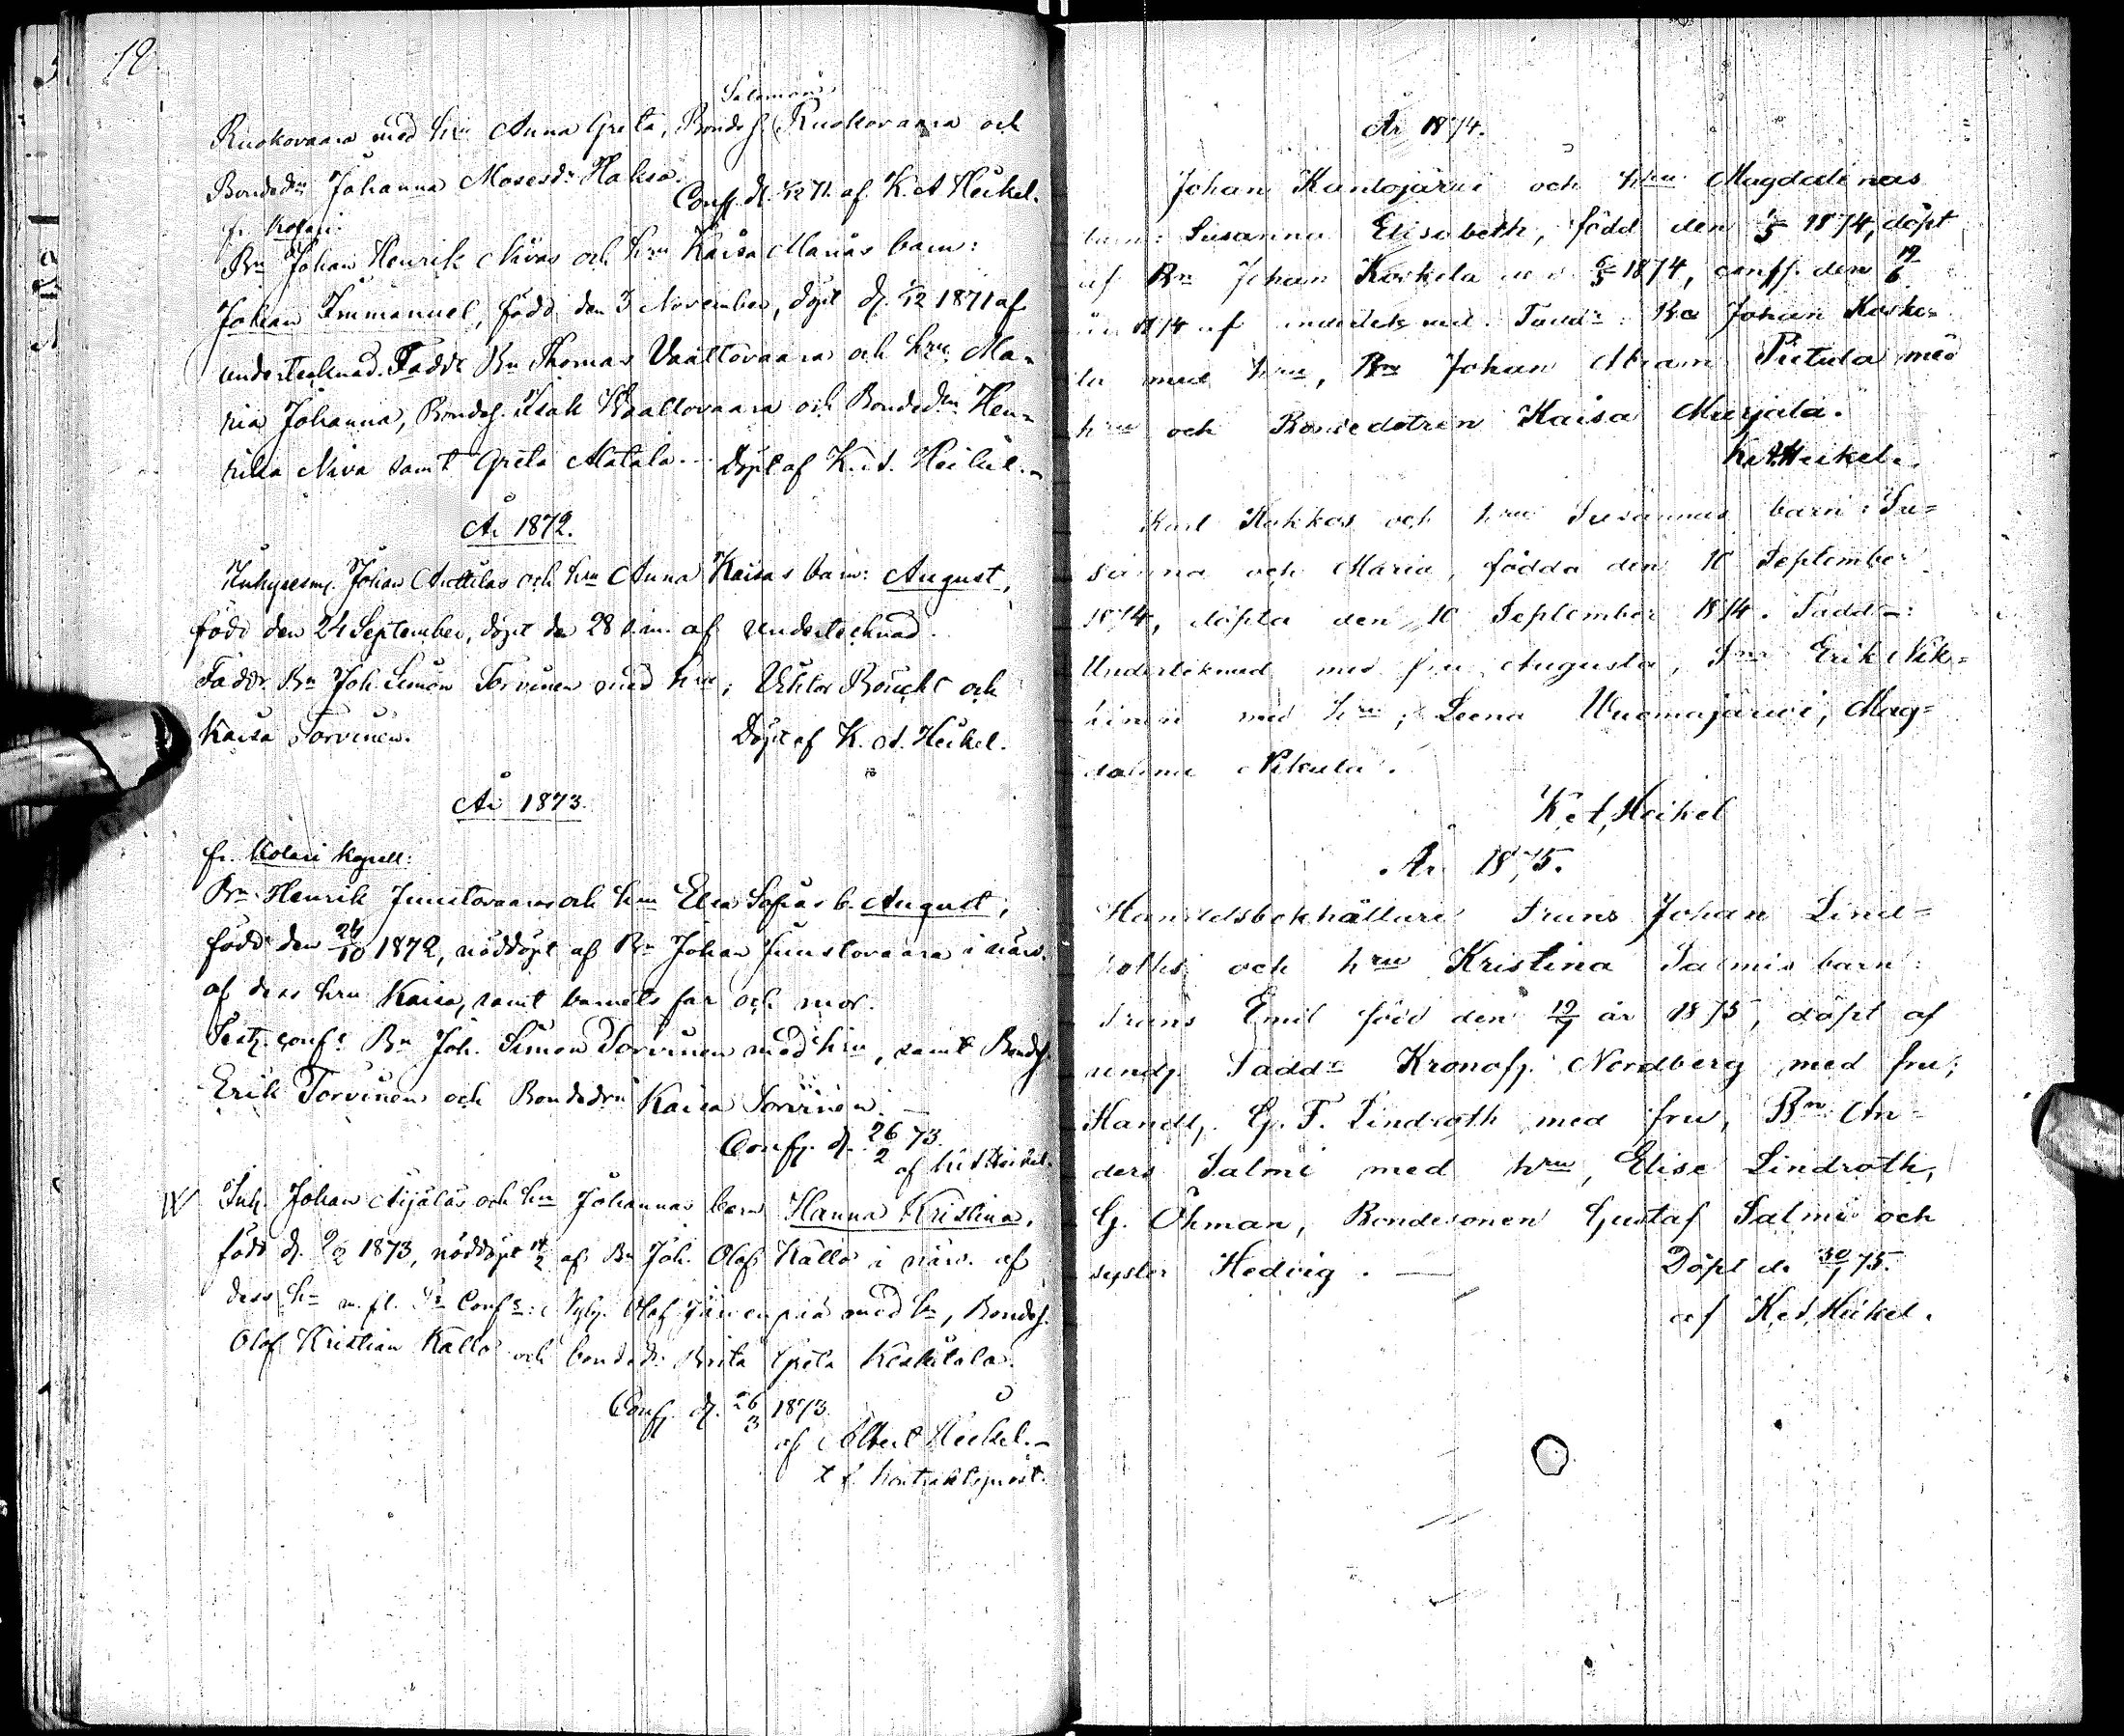 12.
Salomons
Ruokovaara med hru Anna Greta, Bondes. Ruokovaara och
Bondedn Johanna Mosesdr Haksa.
Conf. d. 1/12 71. af K. A Heikel.
fr. Kolari.
Bn Johan Henrik Nivas och hru Kaisa Marias barn:
Johan Immanuel, född den 3 November, döpt d. 1/12 1871 af
undertecknad. Faddr Bn Thomas Vaaltovaara och hru Ma-
ria Johanna, Bondes. Isak Vaaltovaara och Bondedn Hen-
rika Niva samt Greta Alatalo. Döpt af K. A. Heikel.-
År 1872.
Inhysesm. Johan Anttilas och hru Anna Kaisas barn: August,
född den 24 September, döpt den 28 s.m. af undertecknad.
Faddr Bn Joh. Simon Torvinen med hru; Viktor Boucht och
Kaisa Torvinen.
Döpt af K. A. Heikel.
År 1873.
fr. Kolari Kapell:
Bn Henrik Junstovaaras och hru Elsa Sofias b. August;
född den 24/10 1872, nöddöpt af Bn Johan Junstovaara i närv.
af dess hru Kaisa, samt barnets far och mor.
Test. conf. Bn Joh. Simon Torvinen med hru, samt Bondes.
Erik Torvinen och Bondedrn Kaisa Torvinen. -
Conf. d. 26/2 73.
af K. A Heikel.
Inh. Johan Äijälas och hru Johannas barn Hanna Kristina,
född d. 2/2 1873, nöddöpt 14/2 af Bn Joh. Olof Kallo i närv. af
dess hu m. fl. Conf: Nyb. Olof Jäävenpää med hu, Bondes.
Olof Kristian Kallo och bondedr Brita Greta Keskitalo.
Conf. d. 26/3 1873.
af Albert Heikel.-
t f. Kontraktsprost.
År 1874.
Johan Kantojärvi och hru Magdalenas
barn: Susanna Elisabeth, född den 1/5 1874, döpt
af Bn Johan Koskela 6/5 1874, conf. den 19/6
1874 af undertecknad. Faddr: Bn Johan Koske-
la med hru, Bn Johan Abram Pietula med
hru och Bondedotren Kaisa Marjala.
K. A. Heikel.
Karl Kokkos och hru Susannas barn: Su-
sanna och Maria, födda den 10 September
1874, döpta den 10 September 1874. Faddr:
Undertecknad med fru Augusta, Erik Nik-
kinen med hru; Leena Wuomajärvi, Mag-
dalena Nikula.
K. A. Heikel
År 1875.
Handelsbokhållare Frans Johan Lind-
roths och hru Kristina Salmis barn:
Frans Emil född den 19/1 år 1875, döpt af
und. Faddr Kronof. Nordberg med fru;
Handl. G. F. Lindroth med fru, Bn An-
ders Salmi med hru, Elise Lindroth,
G. Öhman, Bondesonen Gustaf Salmi och
syster Hedvig. -
Döpt d. 30/1 75.
af K. A. Heikel.